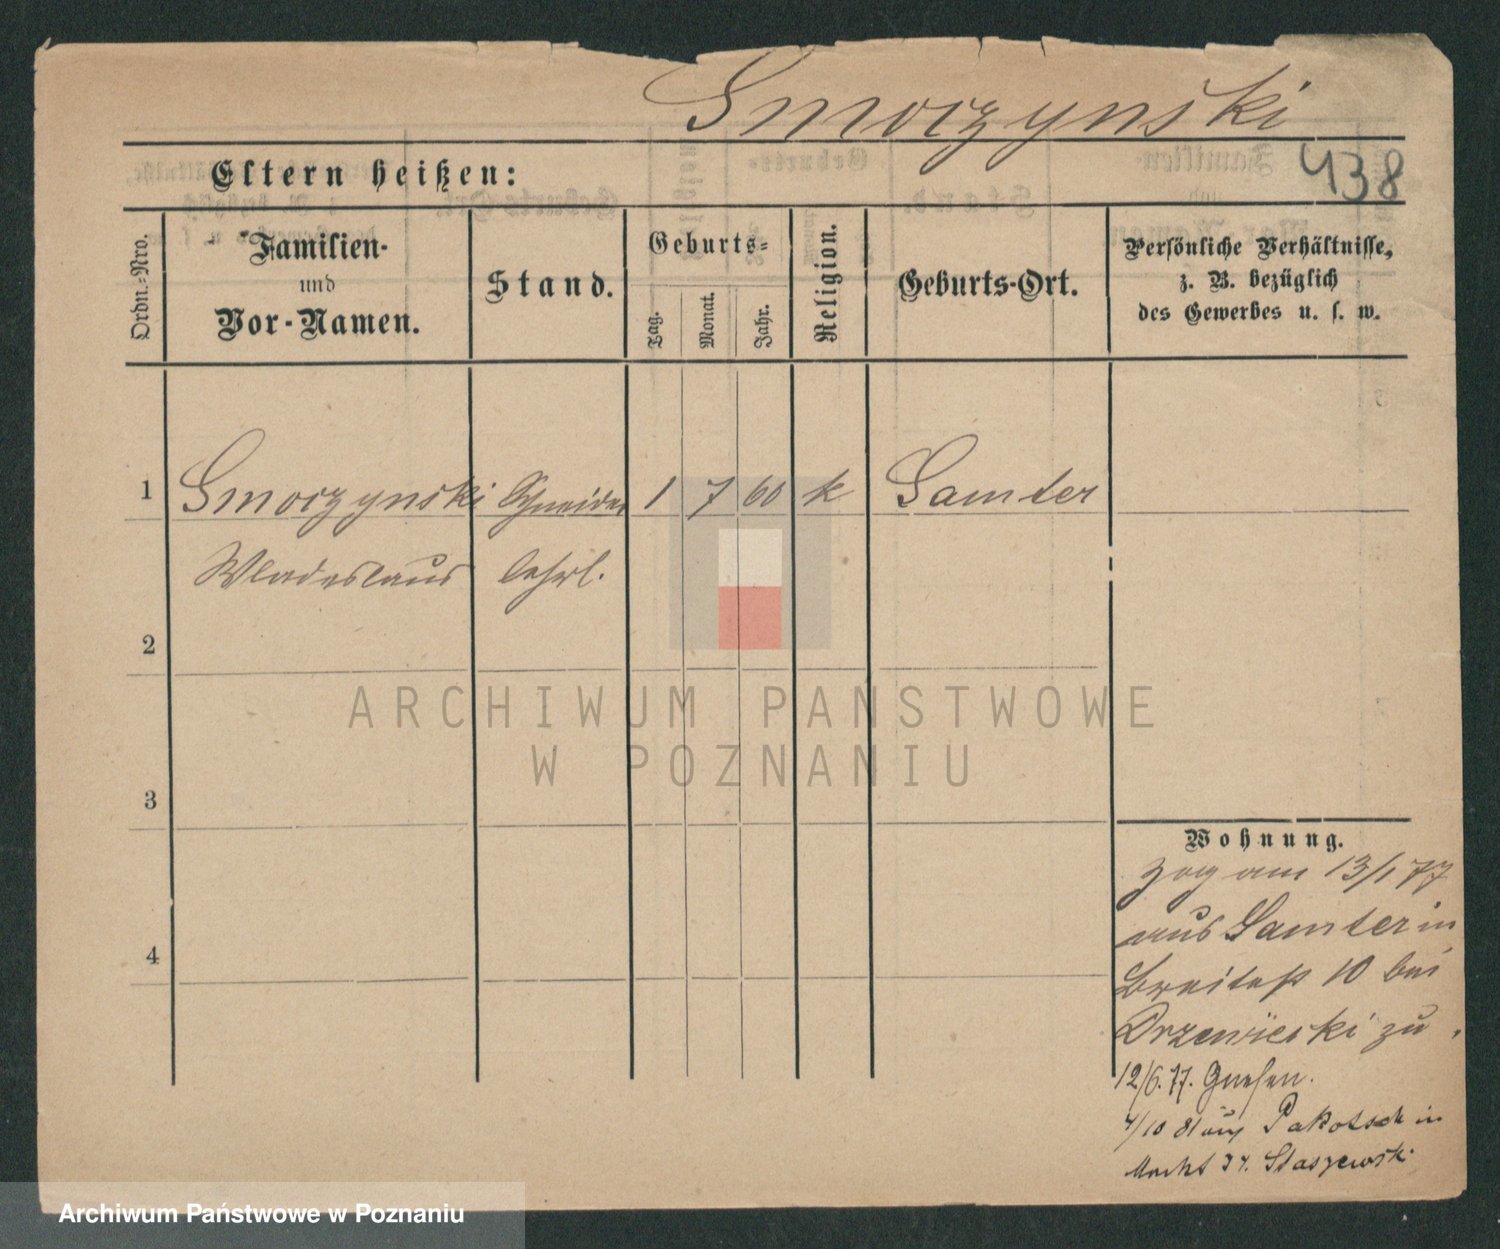 Smorzynski
438
Eltern heißen:
Ordn.-Nro.
Familien-
und
Vor-Namen.
Stand.
Geburts-
Tag.
Monat.
Jahr.
Religion.
Geburts-Ort.
Persönliche Verhältnisse,
z. B. bezüglich
des Gewerbes u. s. w.
1 Smorzynski Schneider 1 7 60 k Samter
Wladeslaus lehrl.
2
ARCHIWUM PAŃSTWOWE
W POZNANIU
3
4
Wohnung.
zog am 13/1 77
aus Samter in
Breitestr 10 bei
Drzewiecki zu
12/6. 77. Gnesen.
4/10 81 aus Pakotsch in
Markt 34. Staszewski
Archiwum Państwowe w Poznaniu